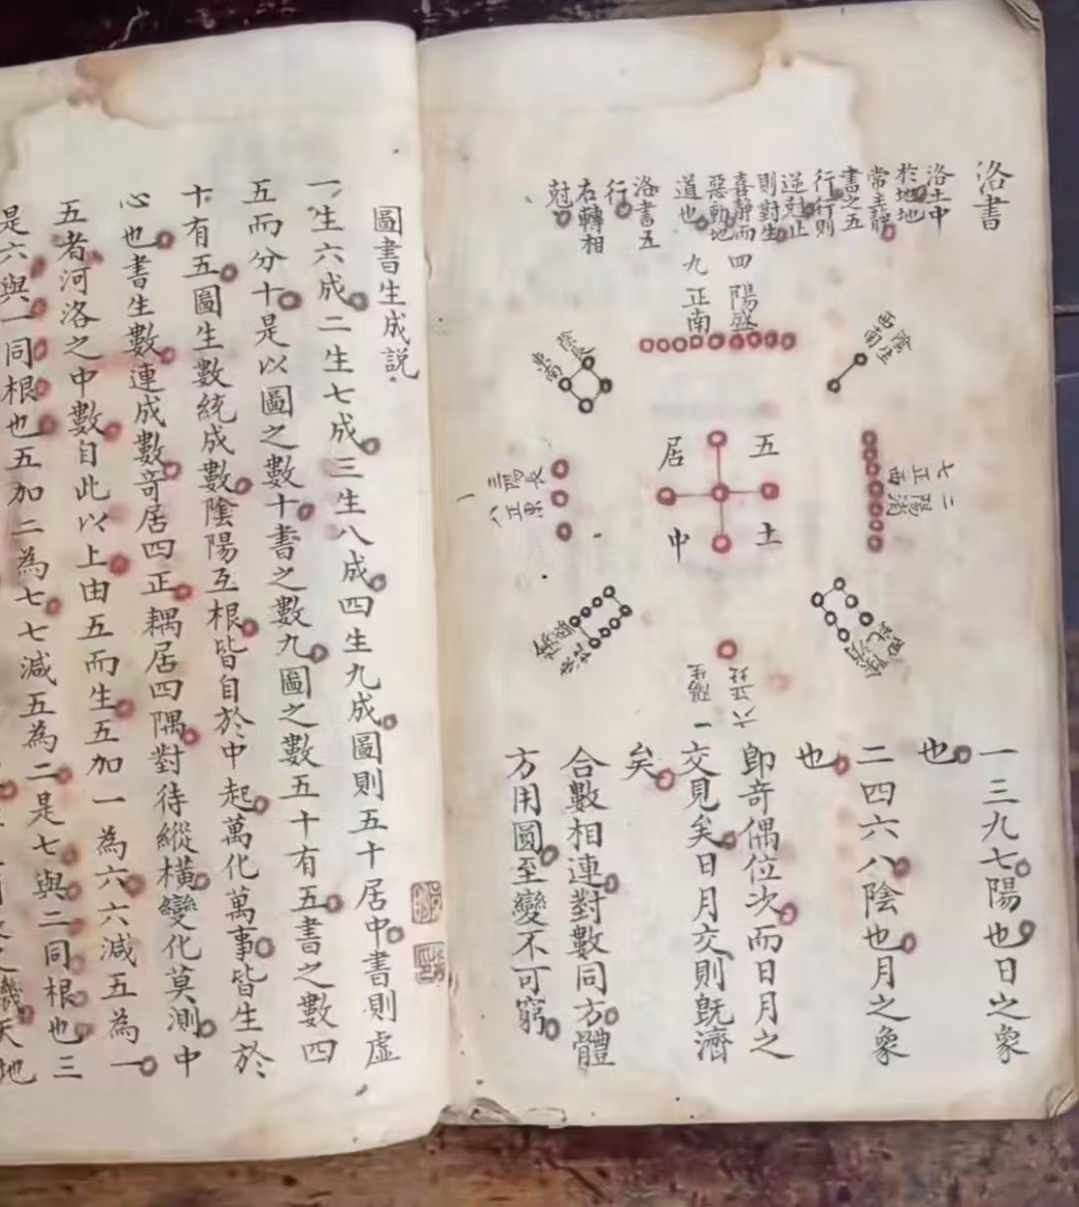 洛書
洛土中
於地地
常主靜
書之五
行行則
逆尅止
則對生
喜靜而
惡動地
道也
洛書五
行
右轉相
尅
四陽盛
九正南
陰生
西南
東南
五土
居中
三陽長
八正東
二陽消
七正西
一三九七陽也日之象
也
二四六八陰也月之象
也
即奇偶位次而日月之
交見矣日月交則旣濟
矣
合數相連對數同方體
方用圓至變不可窮
圖書生成說
一生六成二生七成三生八成四生九成圖則五十居中書則虛
五而分十是以圖之數十書之數九圖之數五十有五書之數四
十有五圖生數統成數陰陽互根皆自於中起萬化萬事皆生於
心也書生數連成數奇居四正耦居四隅對待縱橫變化莫測中
五者河洛之中數自此以上由五而生五加一為六六減五為一
是六與一同根也五加二為七七減五為二是七與二同根也三